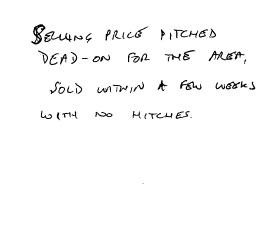 SELLING PRICE PITCHED
DEAD-ON FOR THE AREA,
SOLD WITHIN A FEW WEEKS
WITH NO HITCHES.